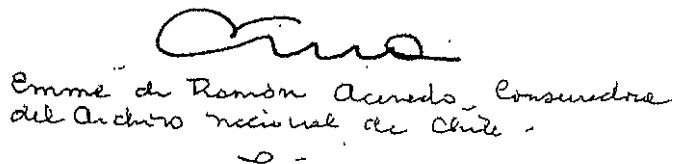 Emma de Ramón Acevedo, Conservadora
del Archivo Nacional de Chile.